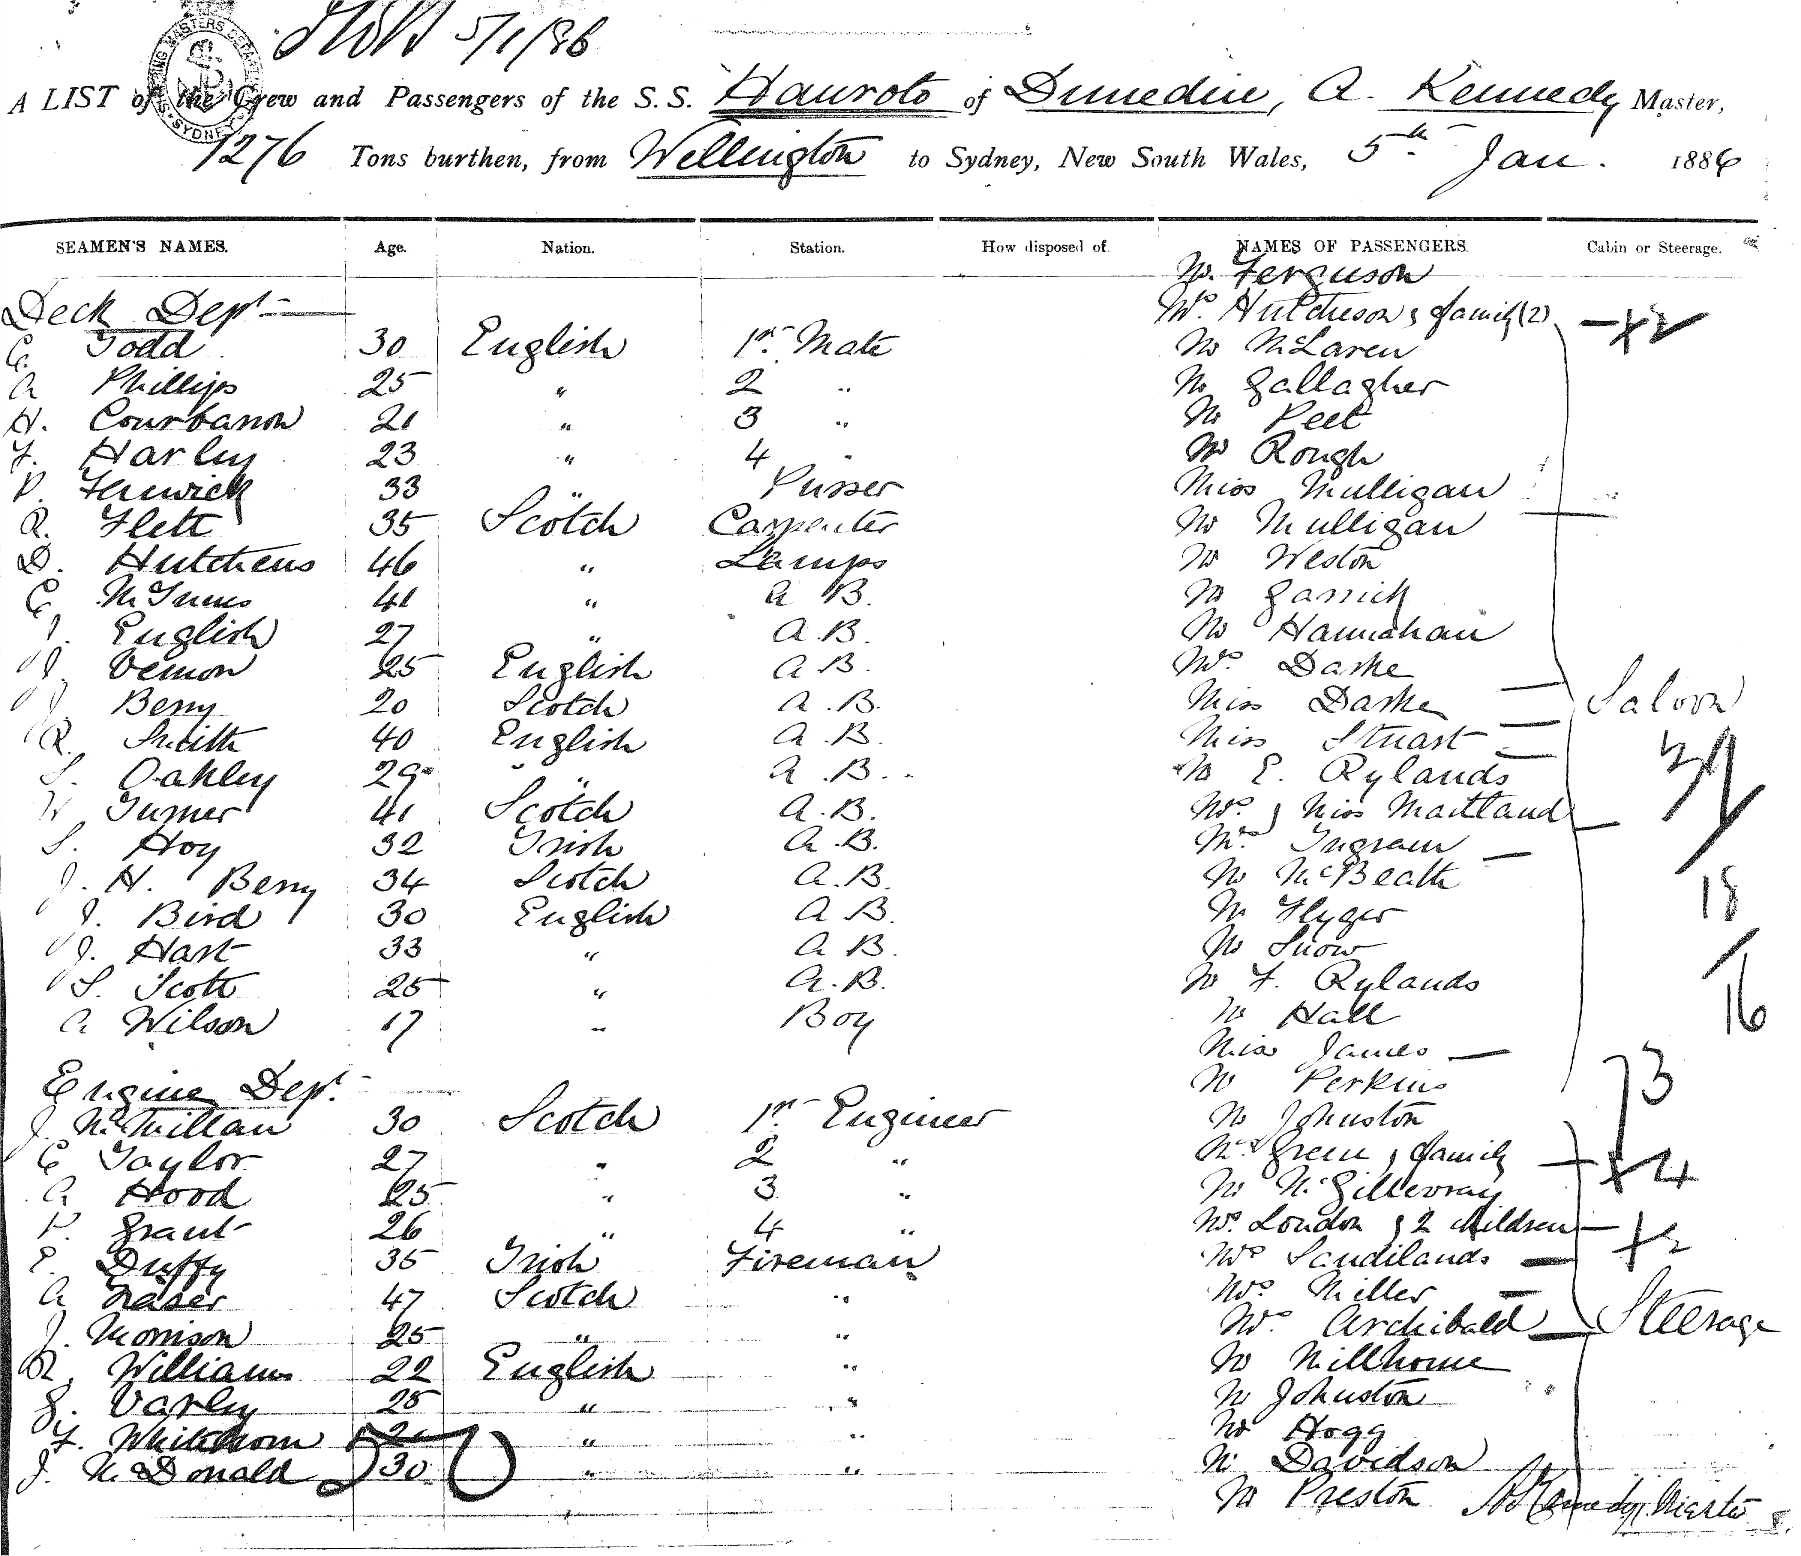 5/1/86
SHIPPING MASTERS DEPARTMENT SYDNEY
A LIST of the Crew and Passengers of the S.S. Hauroto of Dunedin, A. Kennedy Master,
1276 Tons burthen, from Wellington to Sydney, New South Wales, 5th Jan. 1886
SEAMEN'S NAMES. Age. Nation. Station. How disposed of. NAMES OF PASSENGERS. Cabin or Steerage.
Mr. Ferguson
Deck Dept Mrs. Hutcheson & family (2) — +2
C. Todd 30 English 1st. Mate Mr McLaren
A Phillips 25 " 2 " Mr Gallagher
H. Courbanon 21 " 3 " Mr Peet
F. Harley 23 " 4 " Mr Rough
P. Fenwick 33 " Purser Miss Mulligan
R. Flett 35 Scotch Carpenter Mr Mulligan
D. Hutchens 46 " Lamps Mr Weston
C. McInnes 41 " A B. Mr Garrick
J. English 27 " A.B. Mr Hannahan
J. Vernon 25 English A B. Mrs. Darke
J Berry 20 Scotch A.B. Miss Darke — Saloon
R. Smith 40 English A.B. Miss Stuart —
S. Oakley 29 " " A.B. Mr E. Rylands
W Turner 41 Scotch A.B. Mrs. & Miss Maitland —
S. Hoy 32 Irish A.B. Mrs. Ingram —
J. H. Berry 34 Scotch A.B. Mr McBeath 18
J. Bird 30 English A B. Mr Flyger
J. Hart 33 " A B. Mr Snow
S. Scott 25 " A.B. Mr F. Rylands
A Wilson 17 " Boy Mr Hall 16
Miss James —
Engine Dept. Mr Perkins 3
J. McMillan 30 Scotch 1st Engineer Mr Johnston
C Taylor 27 " 2 " Mr Green & family — +4
A Hood 25 " 3 " Mr McGillevray
P. Grant 26 " 4 " Mrs. London & 2 children — +2
E. Duffy 35 Irish Fireman Mrs Sandilands —
A Fraser 47 Scotch " Mrs. Miller —
J. Morrison 25 " " Mrs. Archibald — Steerage
R. Williams 22 English " Mr Millhouse
G. Varley 25 " " Mr Johnston
F. Whitehorn 21 " " Mr Hogg
J. McDonald 30 " " Mr Davidson
Mr Preston A Kennedy, Master